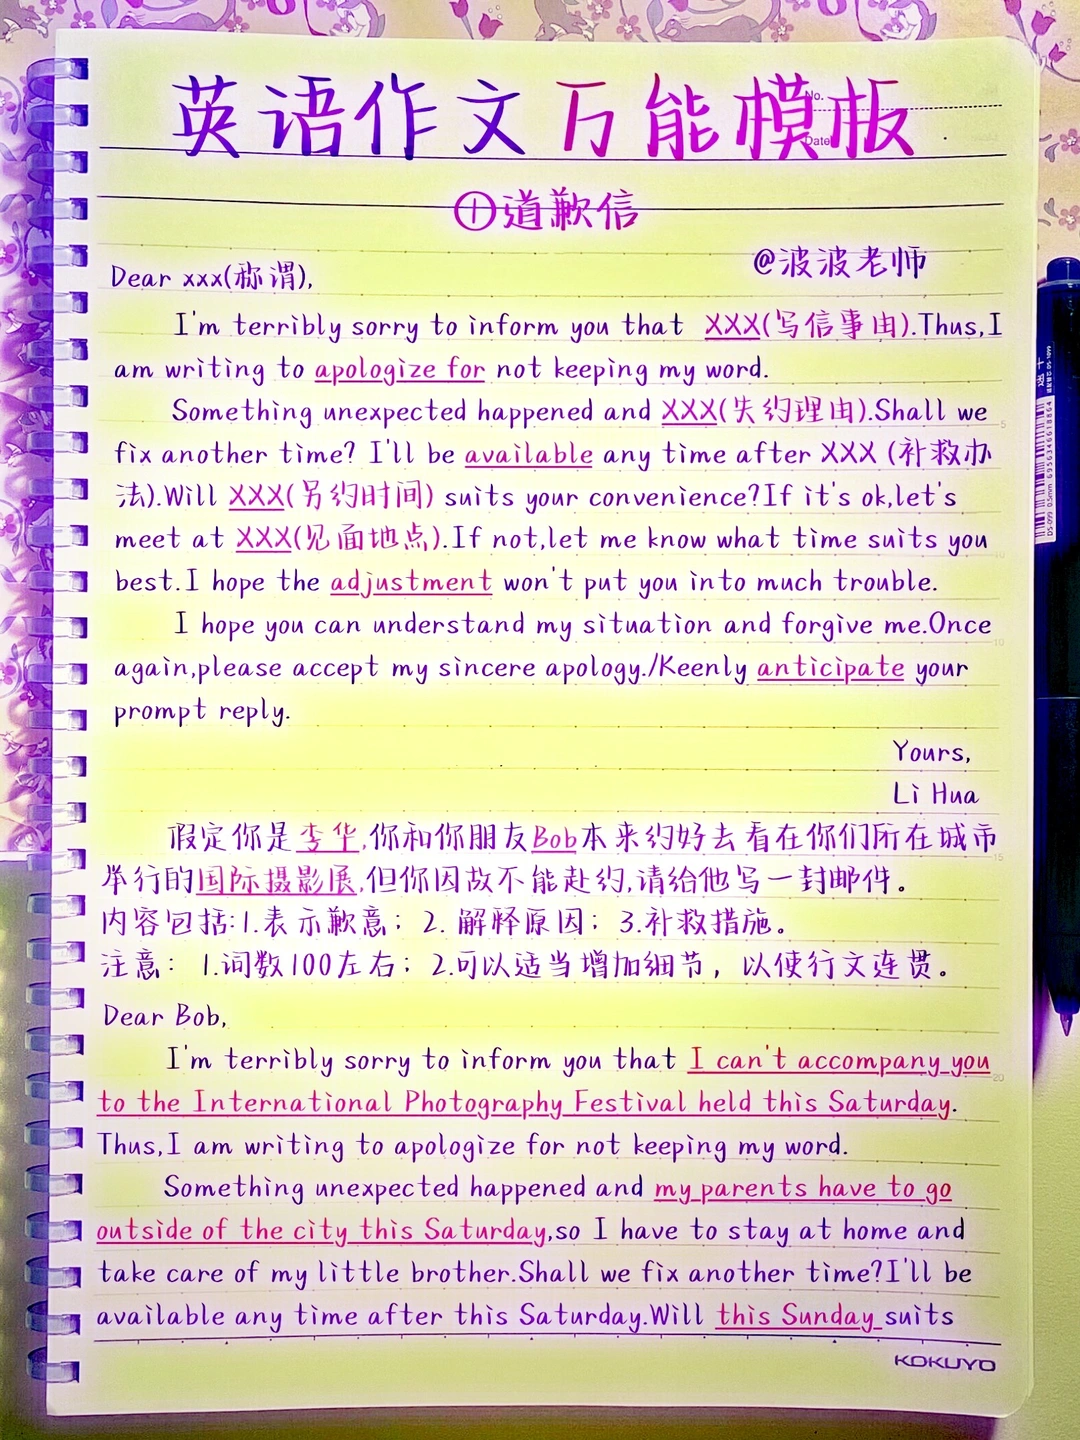 英语作文万能模板
No.
Date
①道歉信
@波波老师
Dear xxx(称谓),
I'm terribly sorry to inform you that XXX(写信事由).Thus,I
am writing to apologize for not keeping my word.
Something unexpected happened and XXX(失约理由).Shall we
fix another time? I'll be available any time after XXX (补救办
法).Will XXX(另约时间) suits your convenience?If it's ok,let's
meet at XXX(见面地点).If not,let me know what time suits you
best.I hope the adjustment won't put you into much trouble.
I hope you can understand my situation and forgive me.Once
again,please accept my sincere apology./Keenly anticipate your
prompt reply.
Yours,
Li Hua
假定你是李华,你和你朋友Bob本来约好去看在你们所在城市
举行的国际摄影展,但你因故不能赴约,请给他写一封邮件。
内容包括:1.表示歉意；2.解释原因；3.补救措施。
注意：1.词数100左右；2.可以适当增加细节，以使行文连贯。
Dear Bob,
I'm terribly sorry to inform you that I can't accompany you
to the International Photography Festival held this Saturday.
Thus,I am writing to apologize for not keeping my word.
Something unexpected happened and my parents have to go
outside of the city this Saturday,so I have to stay at home and
take care of my little brother.Shall we fix another time?I'll be
available any time after this Saturday.Will this Sunday suits
KOKUYO